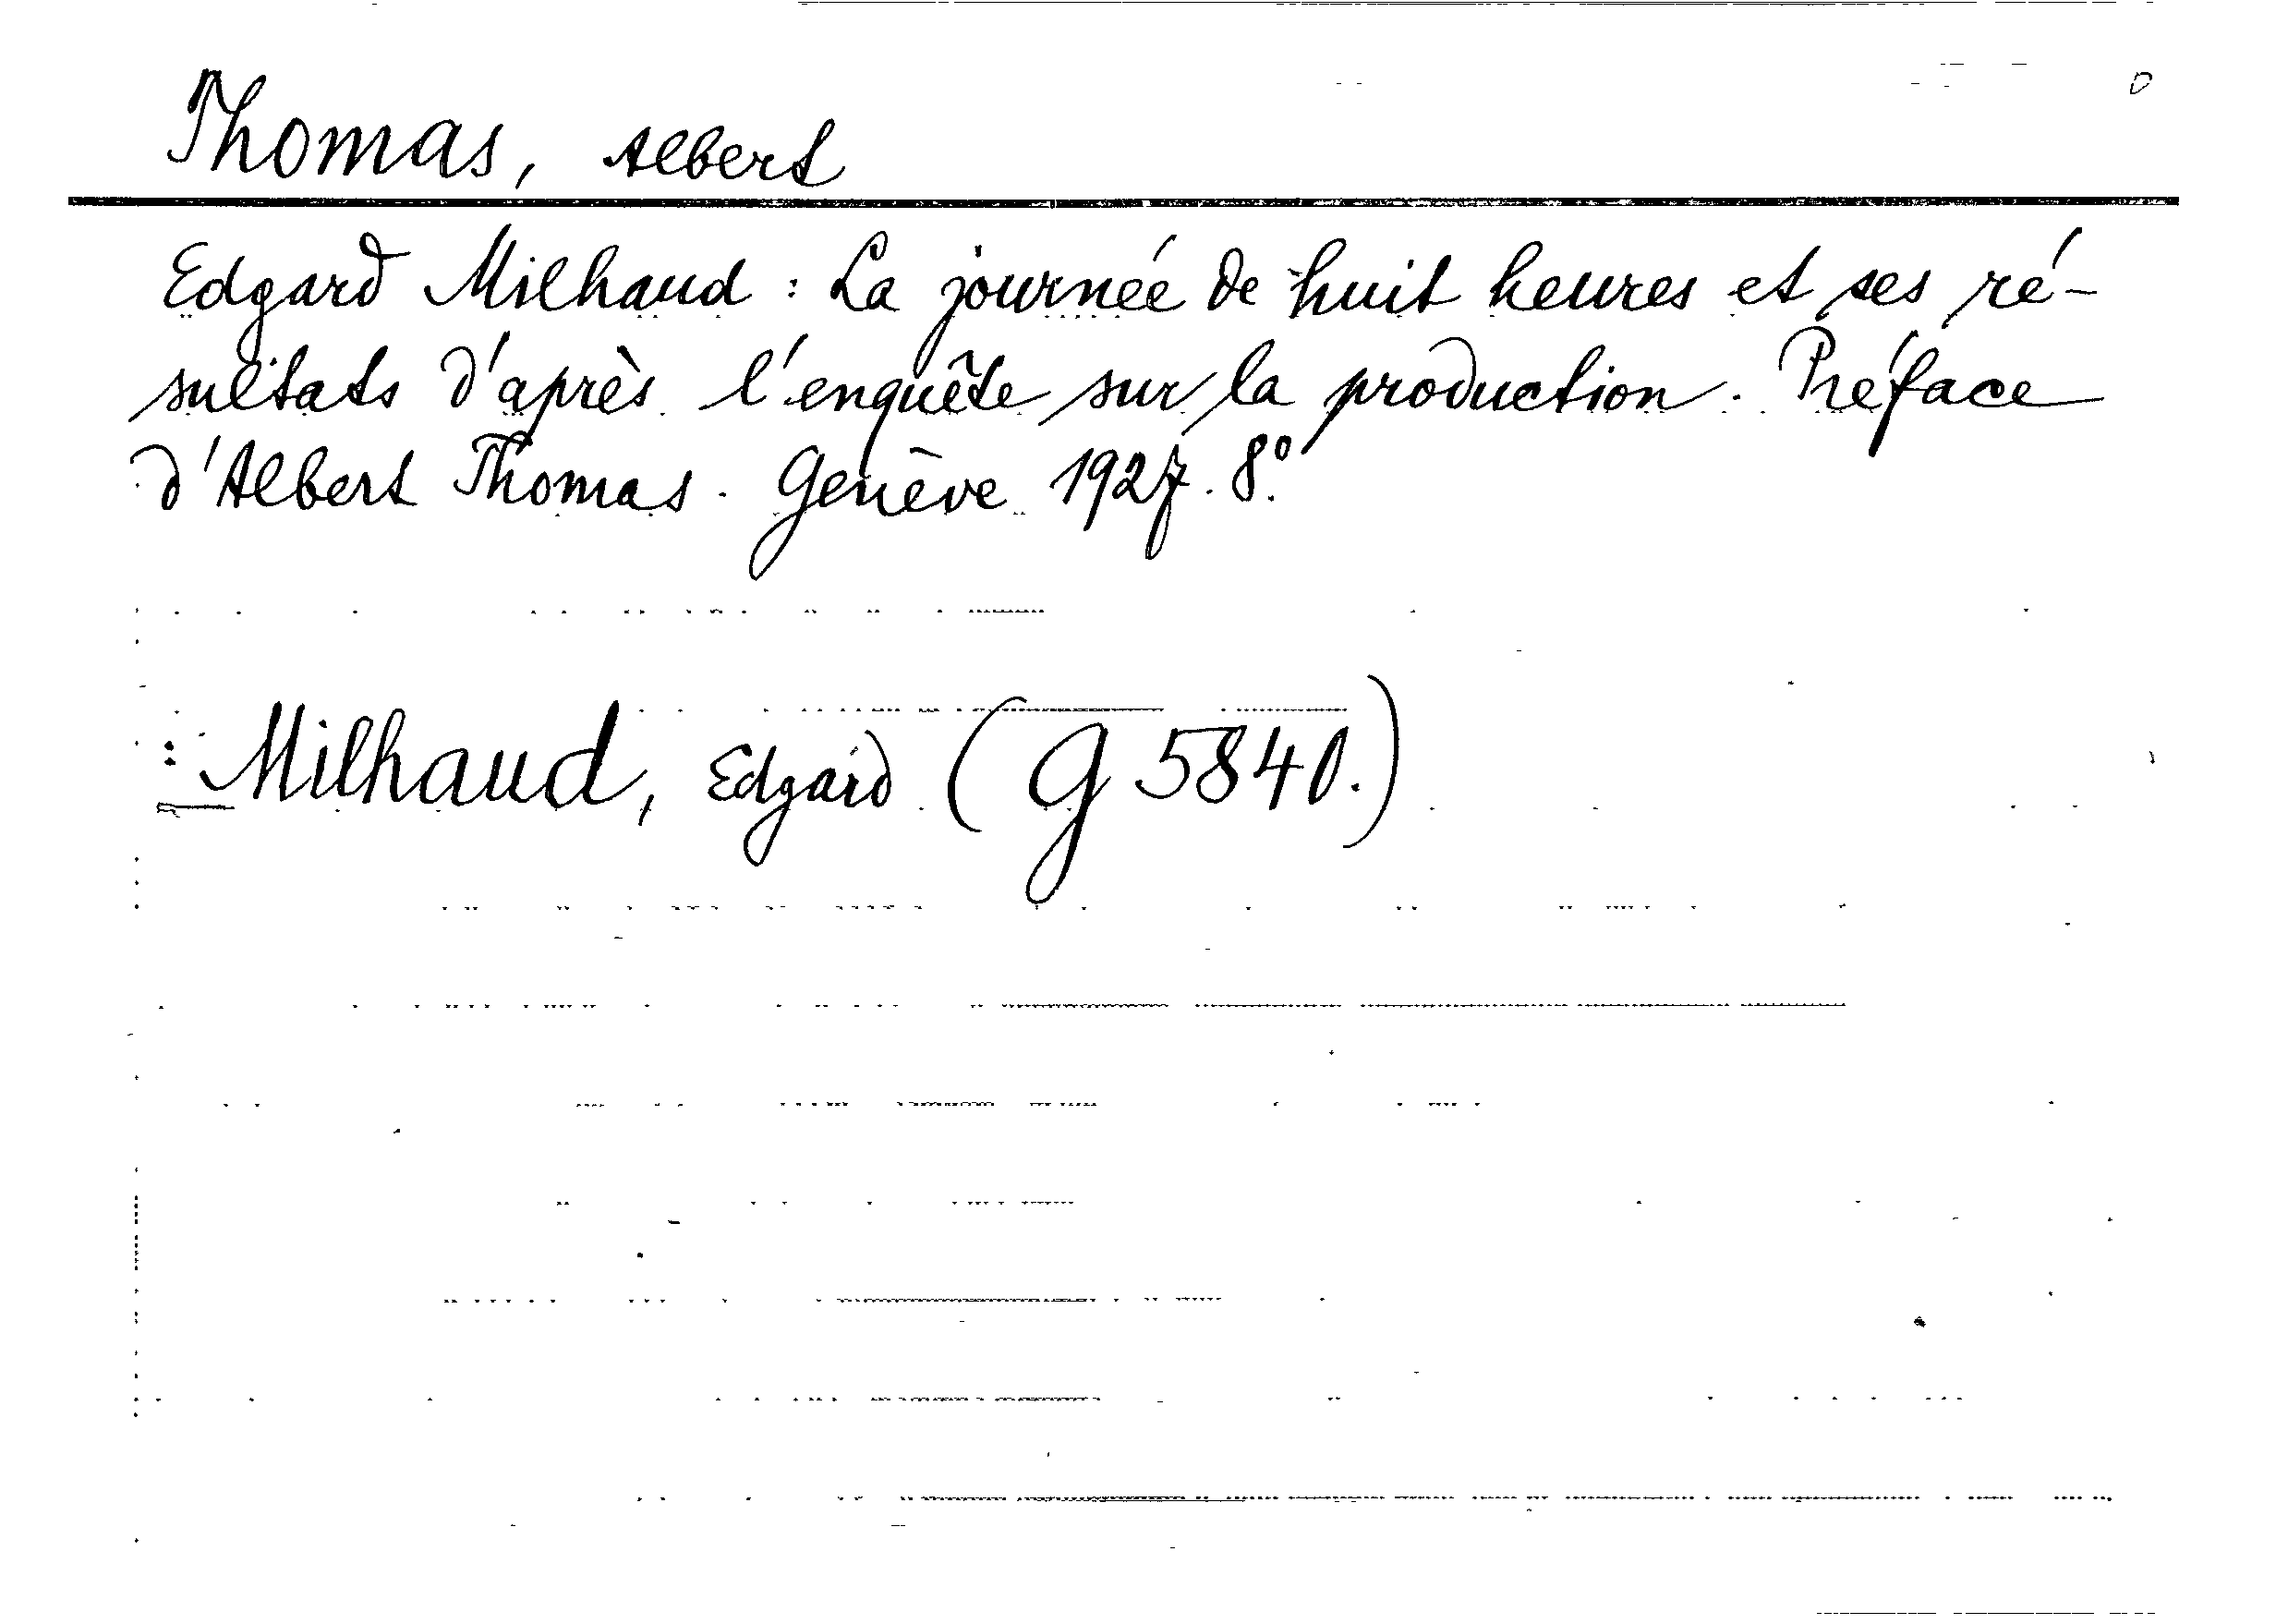 Thomas, Albert
Edgard Milhaud : La journée de huit heures et ses ré-
sultats d'après l'enquête sur la production. Préface
d'Albert Thomas. Genève 1927. 8°.
: Milhaud, Edgard (G 5840.)